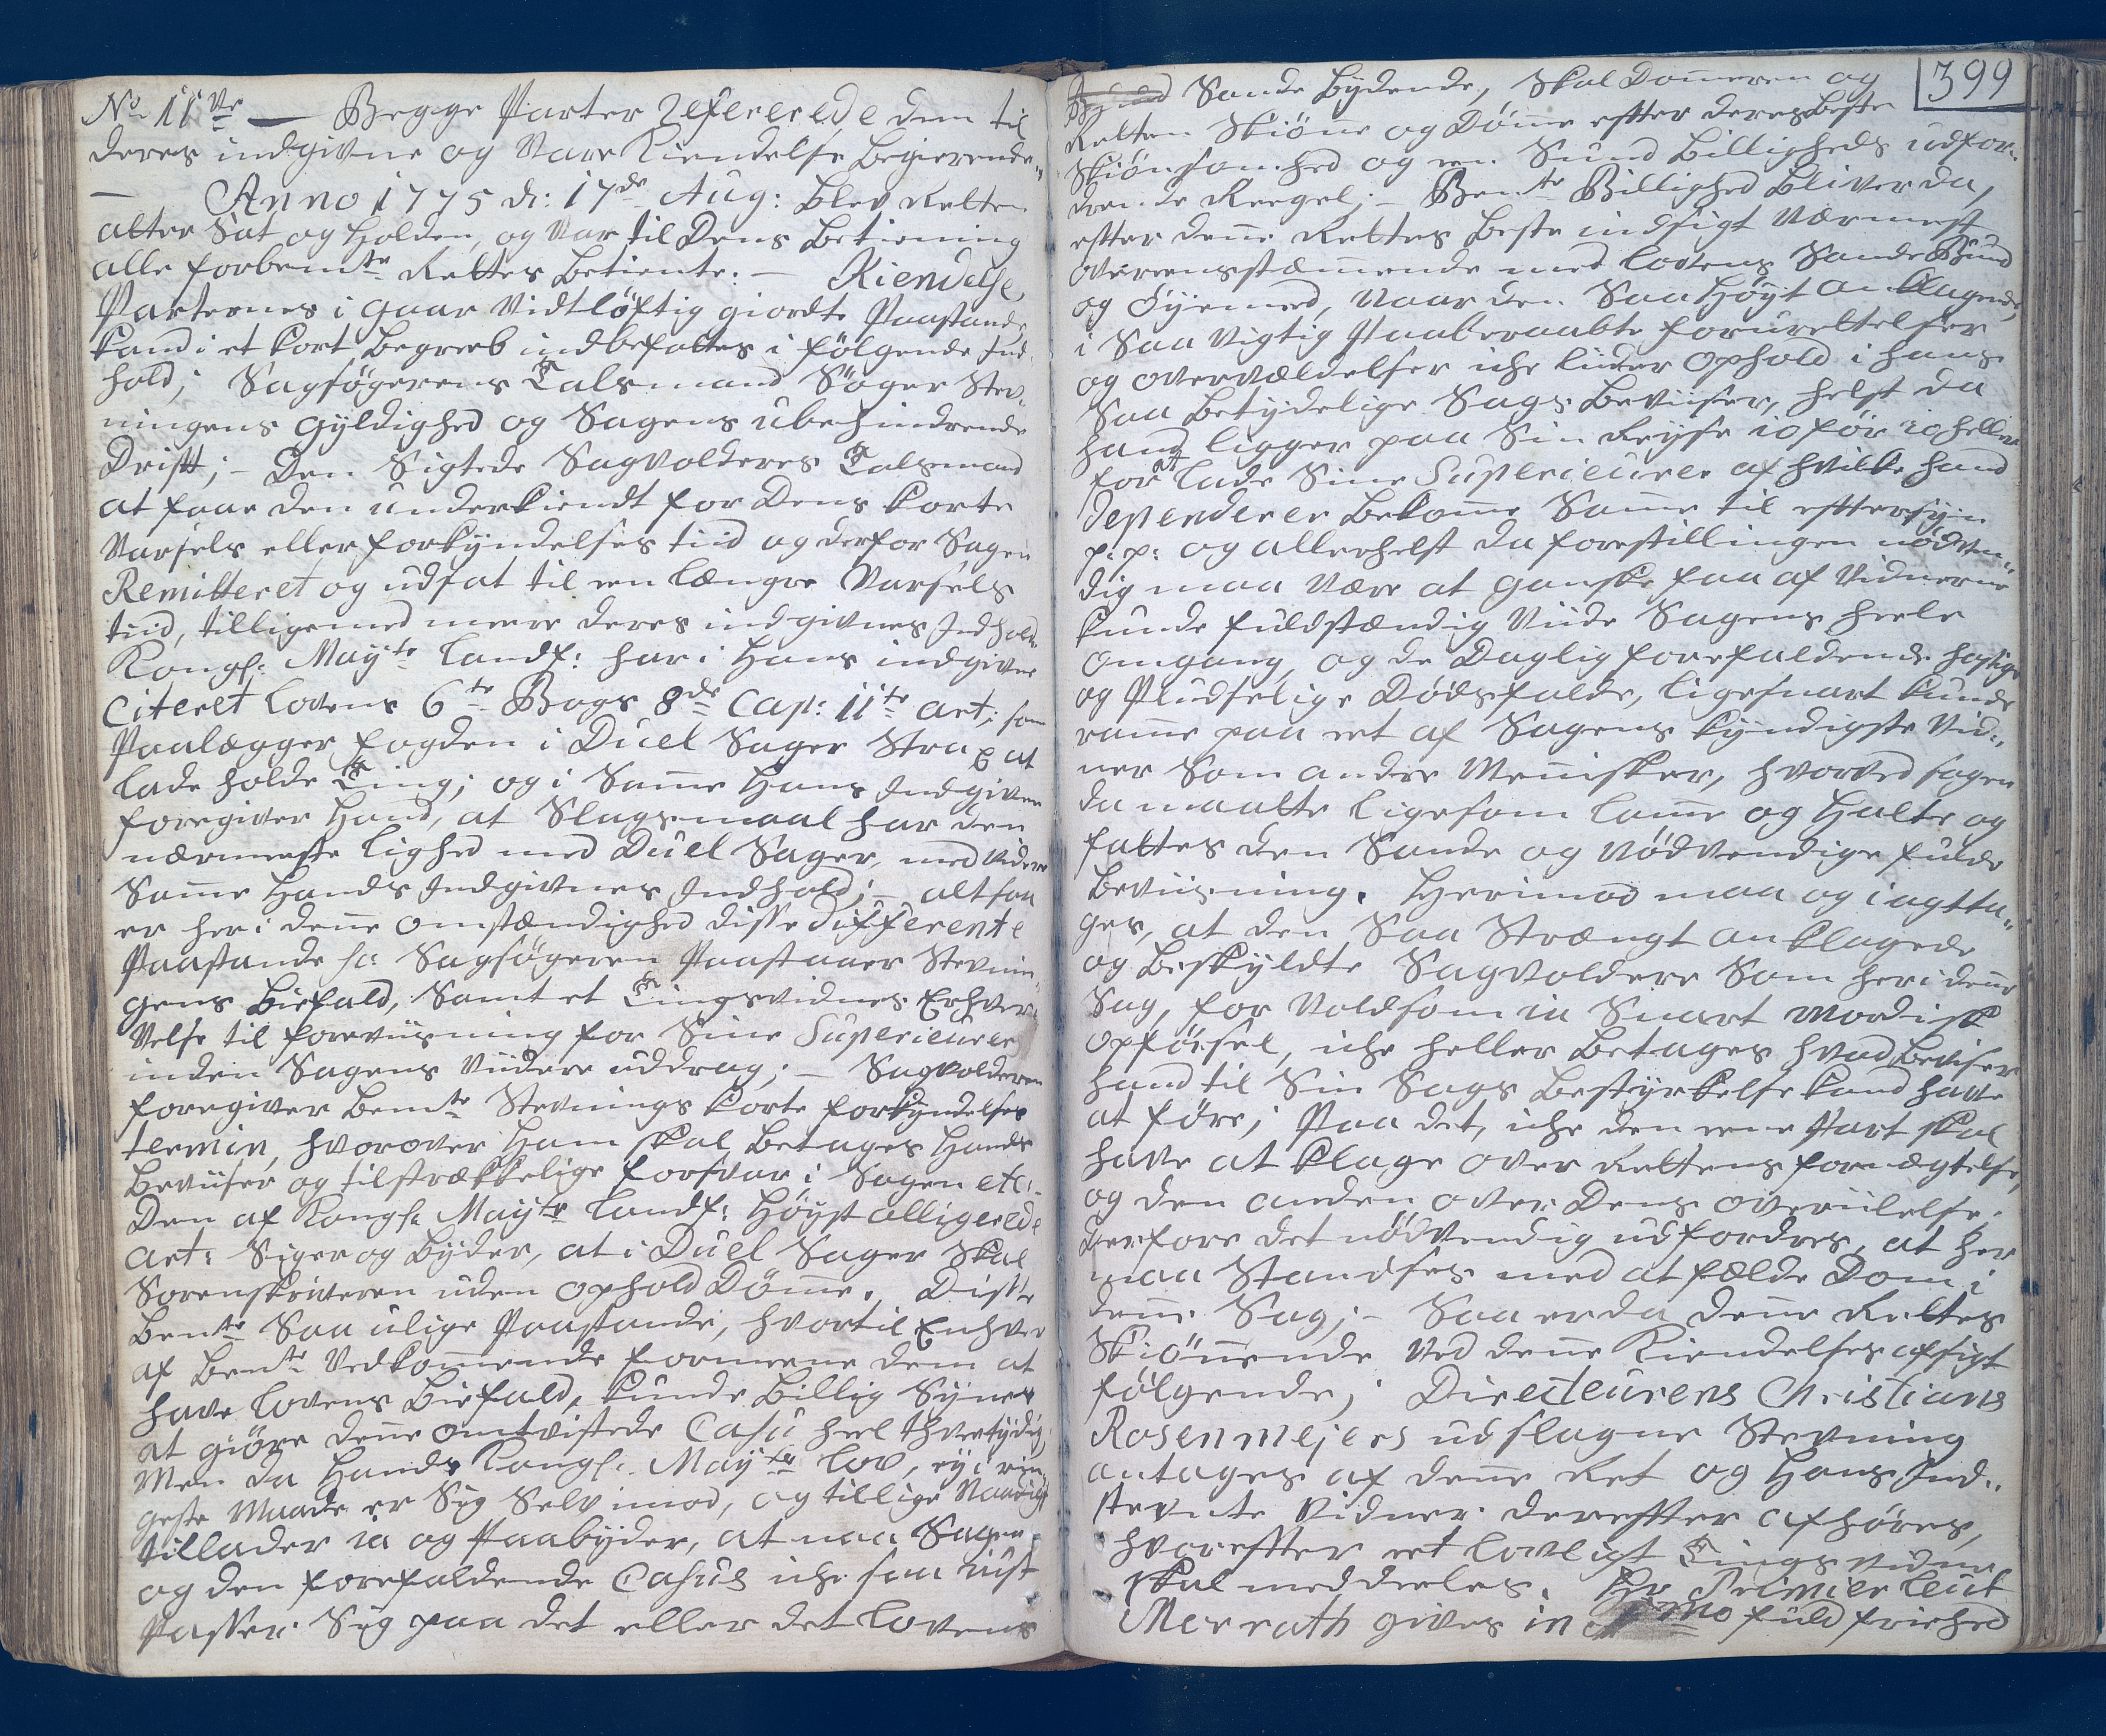 No 11te — Begge Parter refererede dem til
deres indgivne og Vare Kiendelse Begierende
— Anno 1775 d: 17de Aug: blev Retten
atter Sat og Holden, og Var til Dens Betiening
alle forbemte Rettes Betiente. — Kiendelse,
Parternes i Gaar Vidtløftig giordte Paastande
kand i et kort Begreeb indbefattes i følgende Ind¬
hold; Sagsøgerens Talsmand Søger Stev¬
ningens Gyldighed og Sagens ubehindrende
Drift; — Den Sigtede Sagvolderes Talsmand
at faae den underkiendt for Dens korte
Varsels eller forkyndelses tiid og derfor Sagen
Remitteret og udsat til een længre Varsels
tiid, tilligemed meere deres indgivnes Indhold.
Kongl: Mayts Landf: har i Hans indgivne
Citeret Lovens 6te Bogs 8de Cap: 11te art: som
Paalægger fogden i Duel Sager Strax at
lade holde Ting; og i Samme Hans Indgivne
foregiver Hand, at Slagsmaal har den
nærmeste Lighed med Duel Sager, med videre
Samme Hands Indgivnes Indhold; — altsaa
er her i denne omstændighed disse differente
Paastande sc: Sagsøgeren Paastaaer Stevnin¬
gens Biefald, Samt et Tingsvidnes Erhver¬
velse til foreviisning for Sine Superieurer
inden Sagens Viidere uddrag; — Sagvolderen
foregiver bemte Stevnings korte forkyndelses
termin, hvorover Ham skal betages Hands
Beviiser og tilstrækkelige forsvar i Sagen etc:
Den af Kongl: Mayts Landf: Høyst alligerede
art: Siger og byder, at i Duel Sager Skal
Sorenskriveren uden ophold Dømme. Disse
bemte Saa ulige Paastande, hvortil Enhver
af bemte Vedkommende formeene dem at
have Lovens Biefald, kunde billig Synes
at giøre denne omtvistede Casu heel thvetydig,
Men da Hands Kongl: Mayts Lov, ey i rin¬
geste Maade er Sig Selv imod, og tillige Naadigst
tillader ia og Paabyder, at naar Sagen
og den forefaldende Casus iche saa iust
Passer Sig paa det eller det Lovens
399
Sande Bydende, Skal Dommeren og
Retten Skiønne og Dømme effter deres beste
Skiønsomhed og een Sund Billigheds udfor¬
drende Reegel; — Bemte Billighed bliver da,
effter denne Rettes beste indsigt Nærmest
overeensstæmmende med Lovens Sande Bund
og Øyemed, Naar den Saa Høyt an klagende,
i Saa Vigtig Paaberaabte forurettelser
og overvældelser iche lider ophold i hans
Saa betydelige Sags Beviiser, helst da
hand ligger paa Sin Reyse io før io heller
for at lade Sine Superieurer af hvilke hand
dependerer bekomme Samme til efftersyn
p: p: og allerhelst da forestillingen nødven¬
dig maa Være at ganske faa af Vidnerne
kunde fuldstændig Viide Sagens heele
omgang, og de Daglig forefaldende hastige
og Pludselige Dødsfalde, ligesnart kunde
ramme paa eet af Sagens kyndigste Vid¬
ner Som andre Mennisker, hvorved sagen
da maatte ligesom lamme og Halte og
fattes den Sande og Nødvendige fulde
Beviisning. Herimod maa og iagtta¬
ges, at den Saa Strængt an klagede
og Beskyldte Sagvoldere Som her i denne
Sag, for Voldsom ia Snart Mordisk
opførsel, iche heller betages hvad Beviser
hand til Sin Sags Bestyrkelse kand have
at føre; Paa det, iche den eene Part skal
have at klage over Rettens fornægtelse,
og den anden over Dens overiilelse.
derfore det nødvendig udfordres, at her
maa Standses med at fælde Dom i
denne Sag; — Saa er da denne Rettes
Skiønnende Ved denne Kiendelses afsigt
følgende; Directeurens Christians
Rosenmejers udslagne Stevning
antages af denne Ret og Hans Ind¬
stevnte Vidner dereffter afhøres,
hvoreffter eet Lovligt Tingsvidne
Skal meddeeles. Hr Premier Leut
Merrath gives in fuld friehed